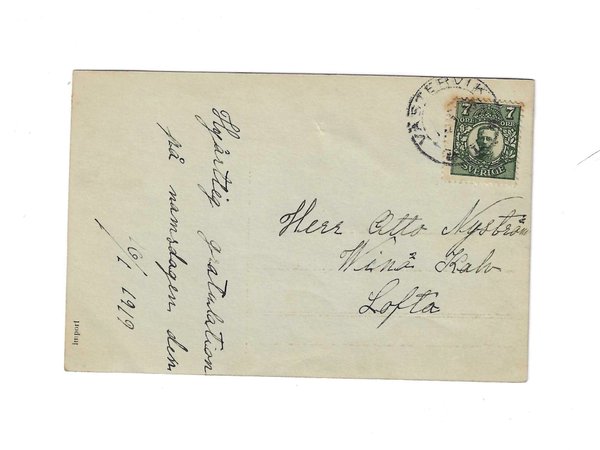 Hjärtlig gratulation
på namsdagen den
16/1 1919
Herr Otto Nyström
Winå Kalv
Lofta
VÄSTERVIK
7 7
ÖRE ÖRE
SVERIGE